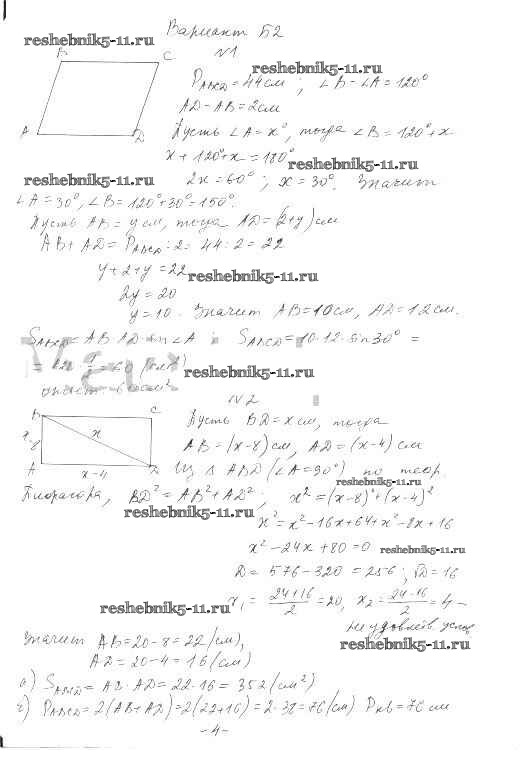 Вариант Б2
reshebnik5-11.ru
N1
B C
reshebnik5-11.ru
P ABCD = 44 см ; ∠B - ∠A = 120°
AD - AB = 2см
A D
Пусть ∠A = x°, тогда ∠B = 120° + x
x + 120° + x = 180°
reshebnik5-11.ru
reshebnik5-11.ru
2x = 60° ; x = 30°. Значит
∠A = 30°, ∠B = 120° + 30° = 150°.
Пусть AB = y см, тогда AD = (2+y) см
AB + AD = P ABCD : 2 = 44 : 2 = 22
y + 2 + y = 22
reshebnik5-11.ru
2y = 20
y = 10. Значит AB = 10 см, AD = 12 см.
S ABCD = AB · AD · sin∠A ; S ABCD = 10 · 12 · sin 30° =
reshebnik5-11.ru
N2
B C
Пусть BD = x см, тогда
x-8 x
AB = (x-8) см, AD = (x-4) см
A D
Из Δ ABD (∠A = 90°) по теор.
x-4
Пифагора, BD² = AB² + AD² ; x² = (x-8)² + (x-4)²
reshebnik5-11.ru
reshebnik5-11.ru
x² = x² - 16x + 64 + x² - 8x + 16
x² - 24x + 80 = 0
reshebnik5-11.ru
D = 576 - 320 = 256 ; √D = 16
reshebnik5-11.ru
x₁ = 24+16/2 = 20, x₂ = 24-16/2 = 4 -
не удовлетв. услов
reshebnik5-11.ru
Значит AB = 20 - 8 = 22 (см),
AD = 20 - 4 = 16 (см)
а) S ABCD = AB · AD = 22 · 16 = 352 (см²)
P ABCD = 2(AB + AD) = 2(22+16) = 2 · 38 = 76 (см) P кв = 76 см
-4-